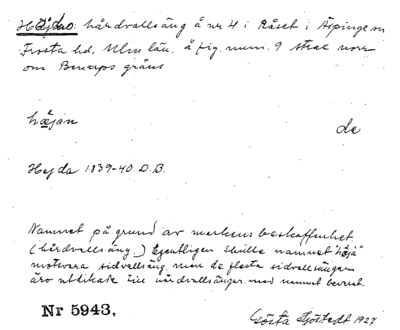 Hejdao: hårdvallsäng å nr 4 i Råset i Äspinge sn
Frosta hd, Mlms län. å fig. num. 9 strax norr
om Benarps gräns
hæjan de
Hejda 1839-40 D.B.
Namnet på grund av markens beskaffenhet
(hårdvallsäng.) Egentligen skulle namnet "hæja"
motsvara sidvallsäng, men de flesta sidvallsängar
äro utdikade till hårdvallsänger med namnet bevarat.
Nr 5943. Gösta Sjöstedt 1927